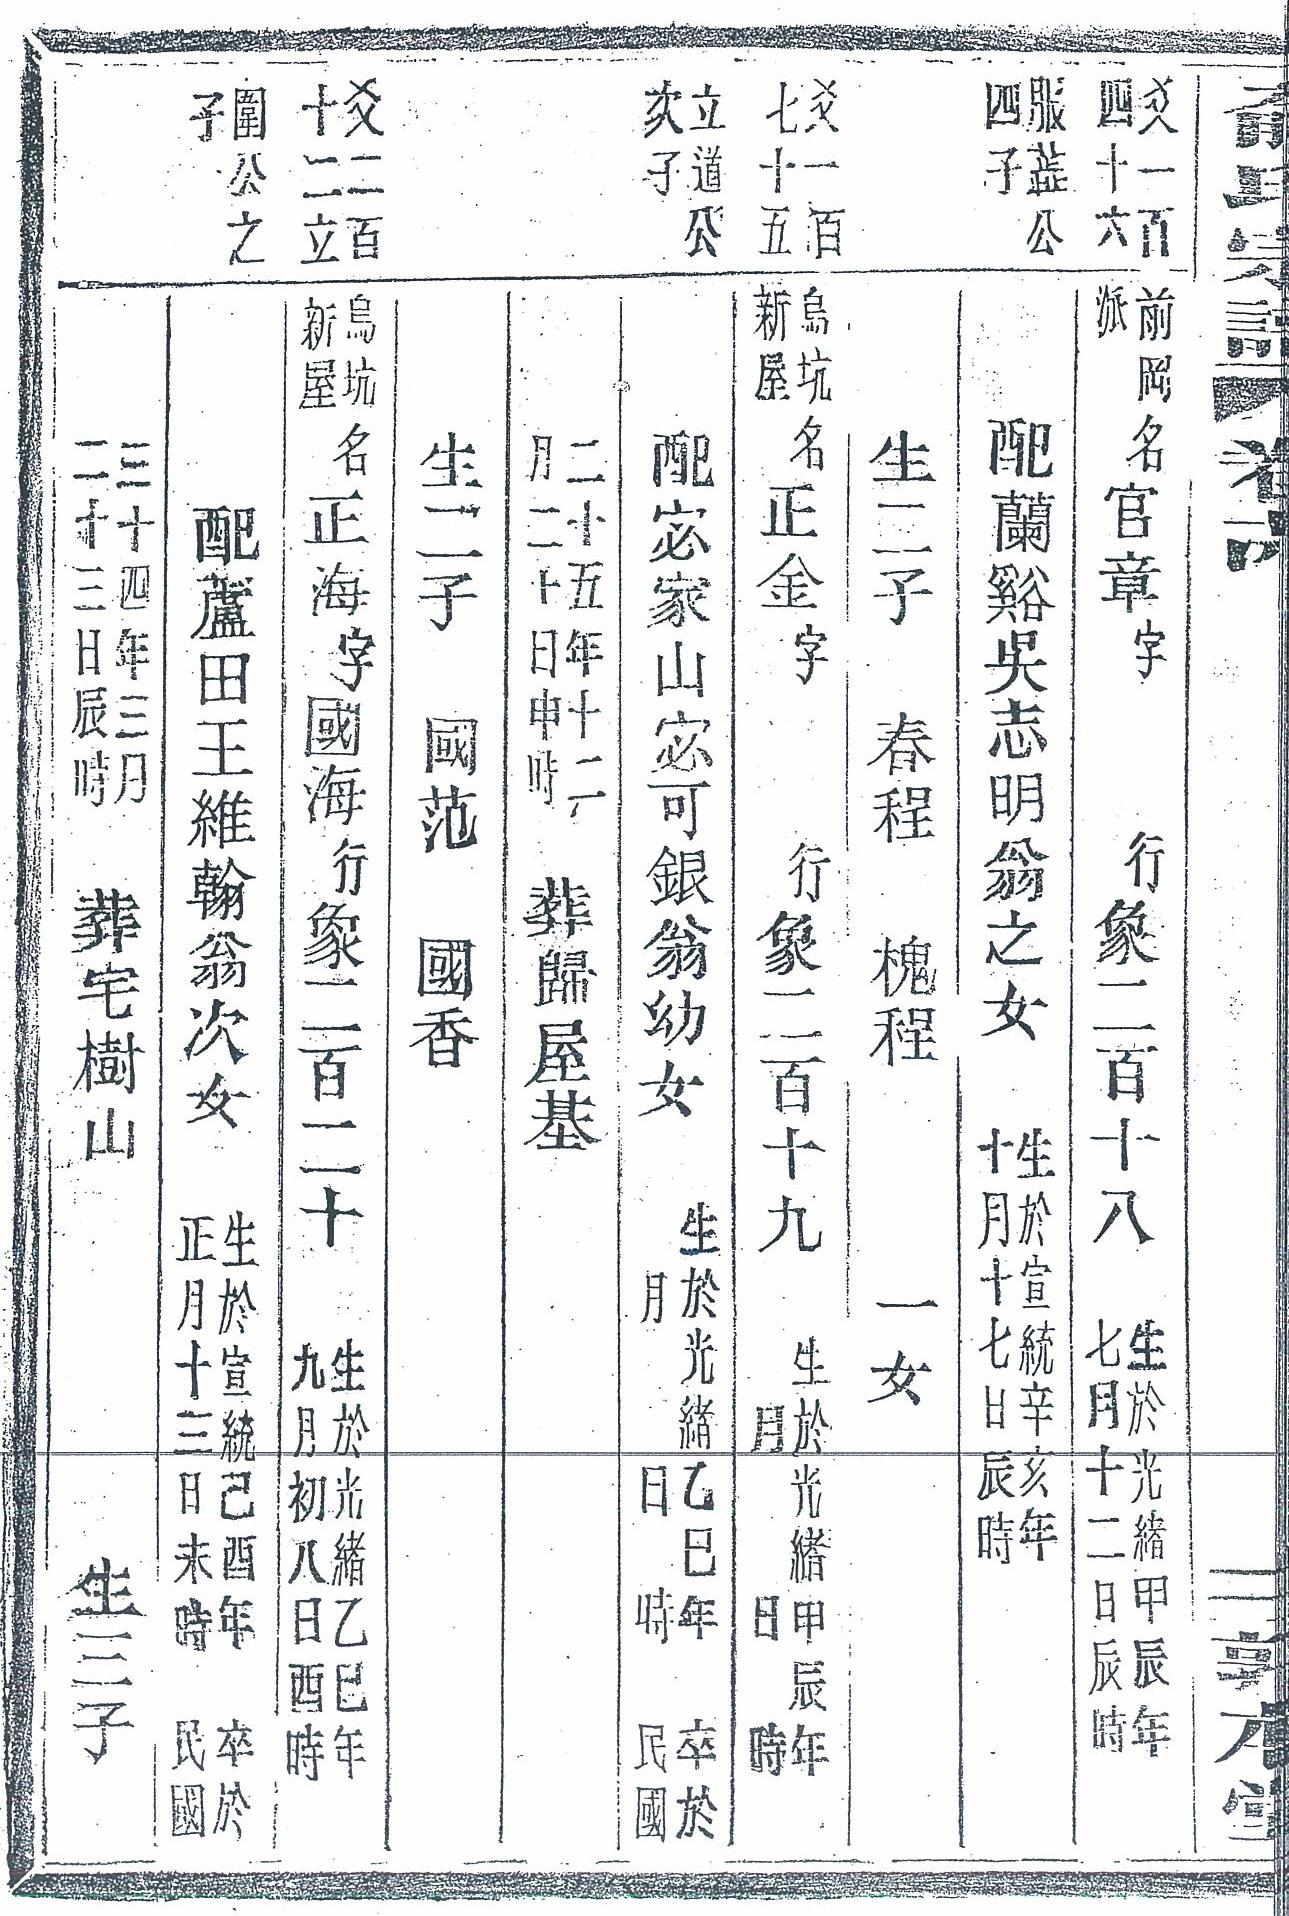 俞氏宗譜 卷六 二 敦本堂
爻一百
四十六
服蕋公
四子
前岡
派
名官章字 行象二百十八
生於光緒甲辰年
七月十二日辰時
配蘭谿吳志明翁之女
生於宣統辛亥年
十月十七日辰時
生二子 春程 槐程 一女
爻一百
七十五
立道公
次子
烏坑
新屋
名正金字 行象二百十九
生於光緒甲辰年
月 日 時
配宓家山宓可銀翁幼女
生於光緒乙巳年 卒於
月 日 時 民國
二十五年十二
月二十日申時
葬歸屋基
生二子 國范 國香
爻二百
十二立
圍公之
子
烏坑
新屋
名正海字國海行象二百二十
生於光緒乙巳年
九月初八日酉時
配蘆田王維翰翁次女
生於宣統己酉年 卒於
正月十三日未時 民國
三十四年三月
二十三日辰時
葬宅樹山 生三子